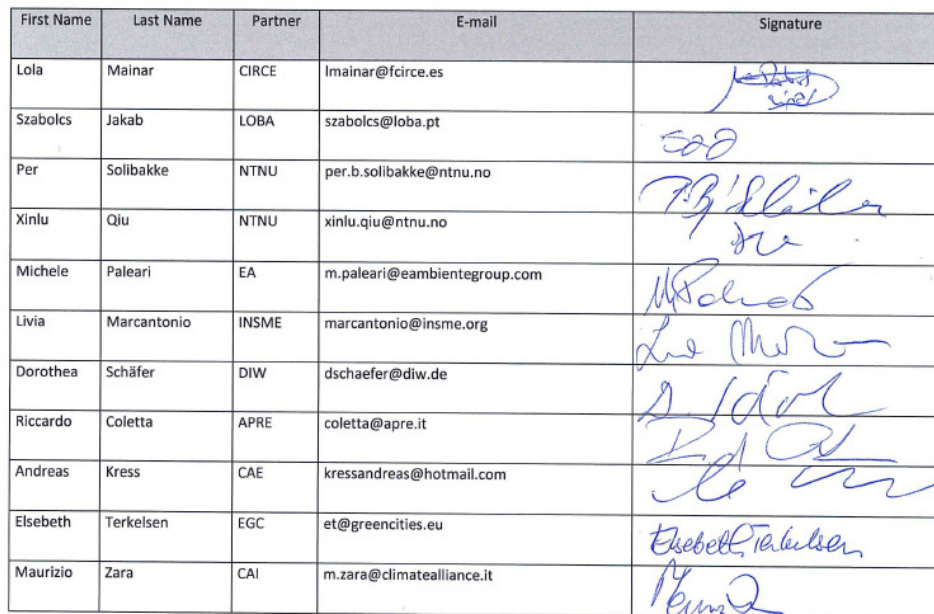 First Name Last Name Partner E-mail Signature
Lola Mainar CIRCE lmainar@fcirce.es
Szabolcs Jakab LOBA szabolcs@loba.pt
Per Solibakke NTNU per.b.solibakke@ntnu.no
Xinlu Qiu NTNU xinlu.qiu@ntnu.no
Michele Paleari EA m.paleari@eambientegroup.com
Livia Marcantonio INSME marcantonio@insme.org
Dorothea Schäfer DIW dschaefer@diw.de
Riccardo Coletta APRE coletta@apre.it
Andreas Kress CAE kressandreas@hotmail.com
Elsebeth Terkelsen EGC et@greencities.eu Elsebeth Terkelsen
Maurizio Zara CAI m.zara@climatealliance.it